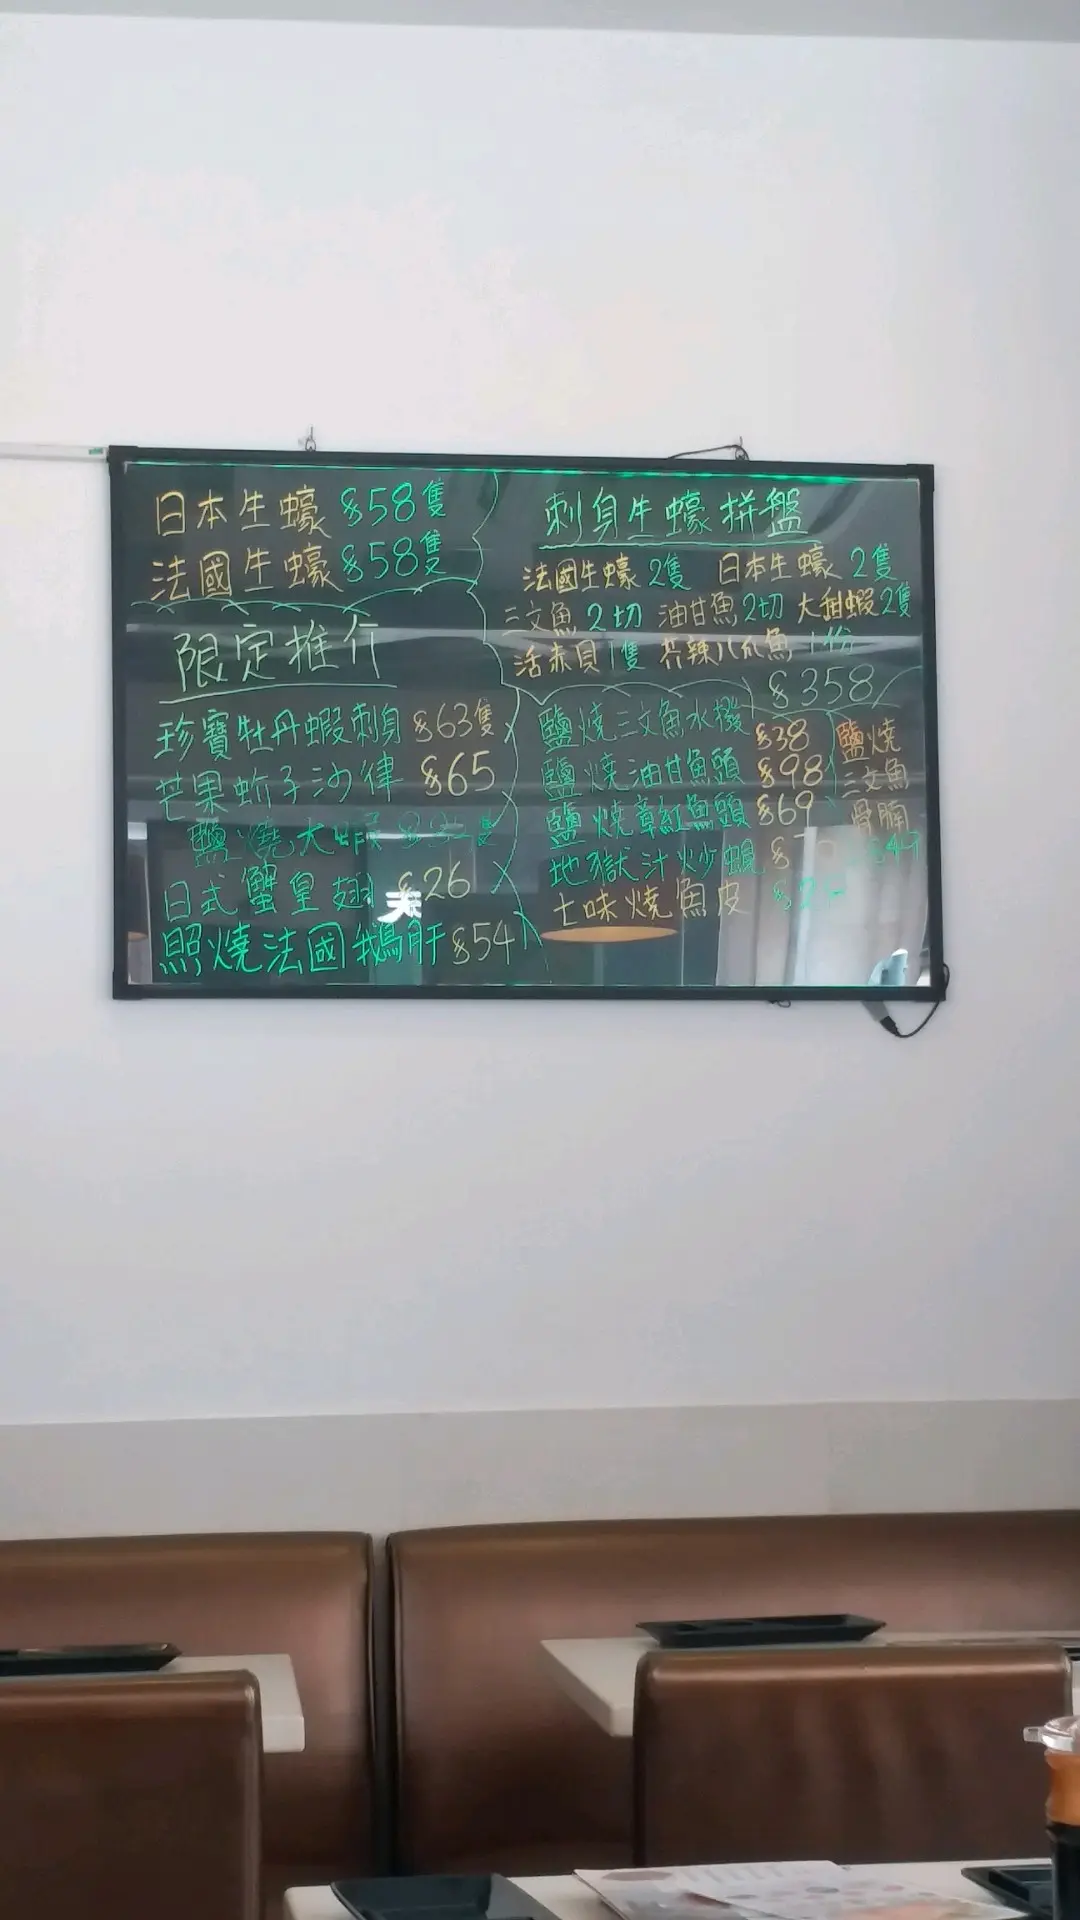 日本生蠔 $58隻
法國生蠔 $58隻
限定推介
珍寶牡丹蝦刺身 $63隻
芒果蚧子沙律 $65
鹽燒大蝦
日式蟹皇翅 $26
照燒法國鵝肝 $54
刺身生蠔拼盤
法國生蠔 2隻 日本生蠔 2隻
三文魚 2切 油甘魚 2切 大甜蝦 2隻
活赤貝 1隻 芥辣八爪魚 1份
$358
鹽燒三文魚水撥 $38
鹽燒油甘魚頭 $98
鹽燒章紅魚頭 $69
地獄汁炒蜆
七味燒魚皮
鹽燒
三文魚
骨腩